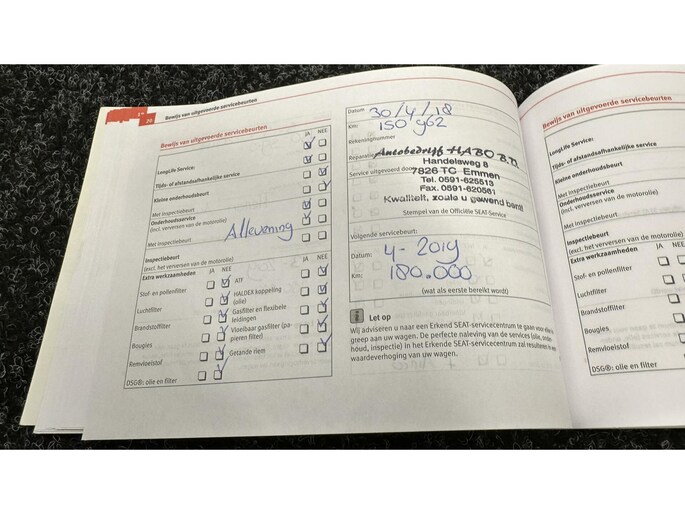 20
Bewijs van uitgevoerde servicebeurten
Bewijs van uitgevoerde servicebeurten
JA NEE
LongLife Service:
Tijds- of afstandsafhankelijke service
Kleine onderhoudsbeurt
Met inspectiebeurt
Onderhoudsservice
(incl. verversen van de motorolie)
Met inspectiebeurt
Aflevering
Inspectiebeurt
(excl. het verversen van de motorolie)
Extra werkzaamheden
JA NEE
JA NEE
Stof- en pollenfilter
ATF
Luchtfilter
HALDEX koppeling
(olie)
Brandstoffilter
Gasfilter en flexibele
leidingen
Bougies
Vloeibaar gasfilter (pa-
pieren filter)
Remvloeistof
Getande riem
DSG®: olie en filter
Datum
30/4/18
Km:
150 962
Rekeningnummer
Reparatie
Autobedrijf HABO B.V.
Service uitgevoerd door
Handelsweg 8
7826 TC Emmen
Tel. 0591-625513
Fax. 0591-620561
Kwaliteit, zoals u gewend bent!
Stempel van de Officiële SEAT-Service
Volgende servicebeurt:
Datum:
4-2019
Km:
180.000
(wat als eerste bereikt wordt)
Let op
Wij adviseren u naar een Erkend SEAT-servicecentrum te gaan voor
greep aan uw wagen. De perfecte naleving van de services (olie, onder-
houd, inspectie) in het Erkende SEAT-servicecentrum zal resulteren in
waardeverhoging van uw wagen.
Bewijs van uitgevoerde servicebeurten
LongLife Service:
Tijds- of afstandsafhankelijke service
Kleine onderhoudsbeurt
Met inspectiebeurt
Onderhoudsservice
(incl. verversen van de motorolie)
Met inspectiebeurt
Inspectiebeurt
(excl. het verversen van de motorolie)
Extra werkzaamheden
JA
Stof- en pollenfilter
Luchtfilter
Brandstoffilter
Bougies
Remvloeistof
DSG®: olie en filter